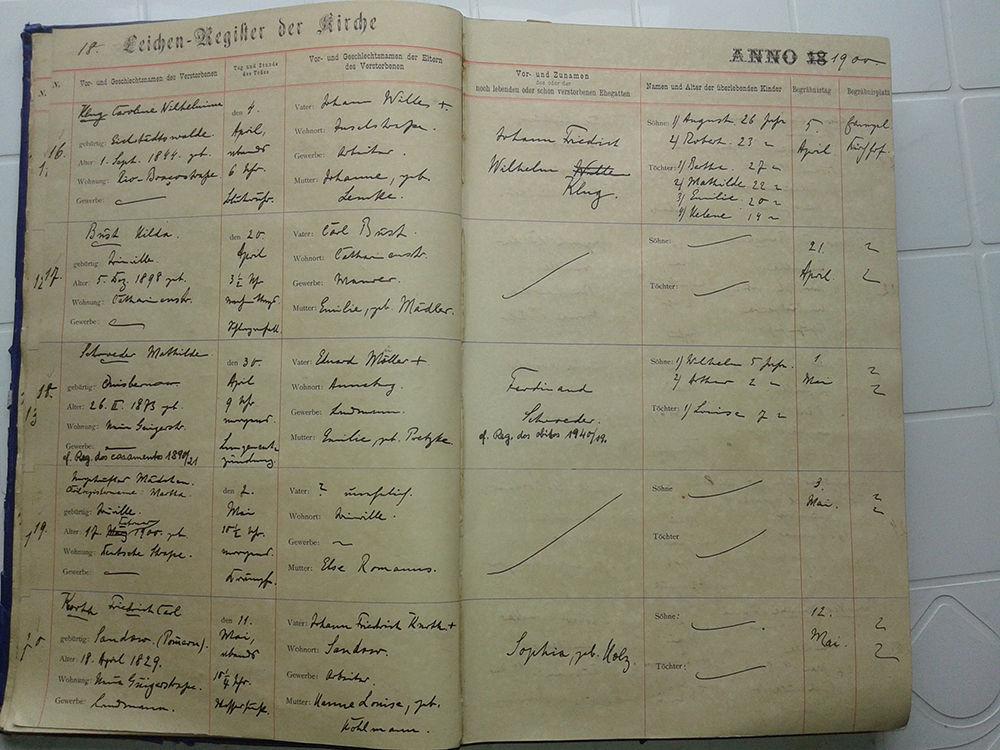 18. Leichen-Register der Kirche
ANNO 18 1900
N. N. Vor- und Geschlechtsnamen des Verstorbenen
Tag und Stunde des Todes
Vor- und Geschlechtsnamen der Eltern des Verstorbenen
Vor- und Zunamen
des oder der
noch lebenden oder schon verstorbenen Ehegatten
Namen und Alter der überlebenden Kinder
Begräbnistag
Begräbnisplatz
16.
Klug Caroline Wilhelmine
gebürtig:
Alter: 1. Sept. 1844. geb.
Wohnung:
Gewerbe:
den 4.
April,
abends
6 Uhr.
Vater: Johann Witte +
Wohnort: Inselstraße.
Gewerbe: Arbeiter.
Mutter: Johanne, geb.
Lemke.
Johann Friedrich
Wilhelm Witte
Klug.
Söhne: 1) August 26 Jahr
2) Robert. 23 "
Töchter: 1) Bertha 27 "
2) Mathilde 22 "
3) Emilie 20 "
4) Helene 14 "
5.
April
17.
Bust Hilda.
gebürtig: Joinville.
Alter: 5. Dez. 1898 geb.
Wohnung: Catharinenstr.
Gewerbe:
den 20.
April
3½ Uhr
Vater: Carl Bust.
Wohnort: Catharinenstr.
Gewerbe: Maurer.
Mutter: Emilie, geb. Mädler.
Söhne:
Töchter:
21.
April.
18.
Schroeder Mathilde
gebürtig:
Alter: 26. II. 1873 geb.
Wohnung:
Gewerbe:
cf. Reg. dos casamentos 1890/21
den 30.
April
9 Uhr
morgens.
Lungenent-
zündung.
Vater: Eduard Möller +
Wohnort: Annaburg.
Gewerbe: Landmann.
Mutter: Emilie, geb. Poetzke
Ferdinand
Schroeder.
cf. Reg. dos obitos 1940/19.
Söhne: 1) Wilhelm 5 Jahr.
2) Arthur 2 "
Töchter: 1) Louise 7 "
1.
Mai
19.
Ungetauftes Mädchen.
Civilregistername: Martha
gebürtig: Joinville.
Alter: 17. 1900. geb.
Wohnung: Deutsche Straße.
Gewerbe:
den 2.
Mai
10½ Uhr.
morgens.
Krämpfe.
Vater: ? unehelich.
Wohnort: Joinville.
Gewerbe:
Mutter: Else Romanus.
Söhne
Töchter
3.
Mai.
Korth Friedrich Carl
gebürtig: Sandow. (Pommern).
Alter: 18. April 1829.
Wohnung:
Gewerbe: Landmann.
den 11.
Mai,
abends
10¼ Uhr.
Vater: Johann Friedrich Korth +
Wohnort: Sandow.
Gewerbe: Arbeiter.
Mutter: Hanne Louise, geb.
Kohlmann.
Sophia, geb. Holz.
Söhne:
Töchter:
12.
Mai.